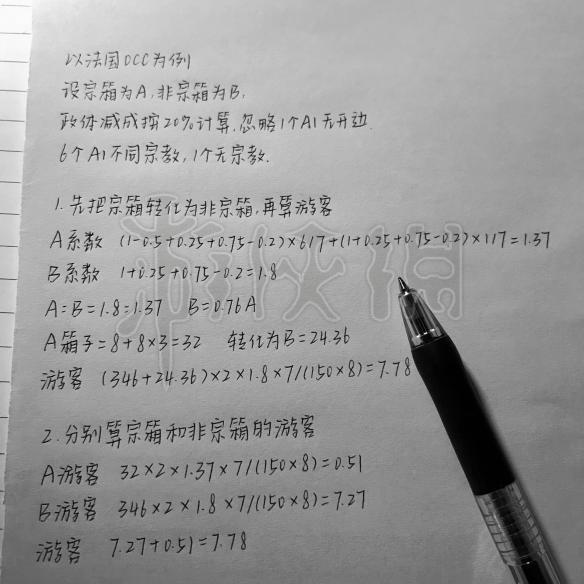 以法国OCC为例
设宗箱为A,非宗箱为B,
政体减成按20%计算,忽略1个AI无开边.
6个AI不同宗教,1个无宗教.
1.先把宗箱转化为非宗箱,再算游客
A系数 (1-0.5+0.25+0.75-0.2)×6/7+(1+0.25+0.75-0.2)×1/7=1.37
B系数 1+0.25+0.75-0.2=1.8
A=B=1.8=1.37 B=0.76A
A箱子=8+8×3=32 转化为B=24.36
游客 (346+24.36)×2×1.8×7/(150×8)=7.78
2.分别算宗箱和非宗箱的游客
A游客 32×2×1.37×7/(150×8)=0.51
B游客 346×2×1.8×7/(150×8)=7.27
游客 7.27+0.51=7.78
游侠网